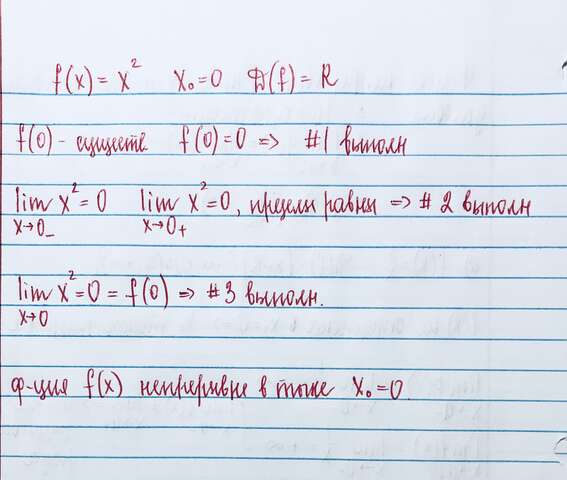 f(x) = x² x₀=0 D(f) = R
f(0) - существ. f(0)=0 => #1 выполн
lim x²=0 lim x²=0, пределы равны => # 2 выполн
x→0₋ x→0₊
lim x²=0 = f(0) => #3 выполн.
x→0
ф-ция f(x) непрерывне в точке x₀=0.